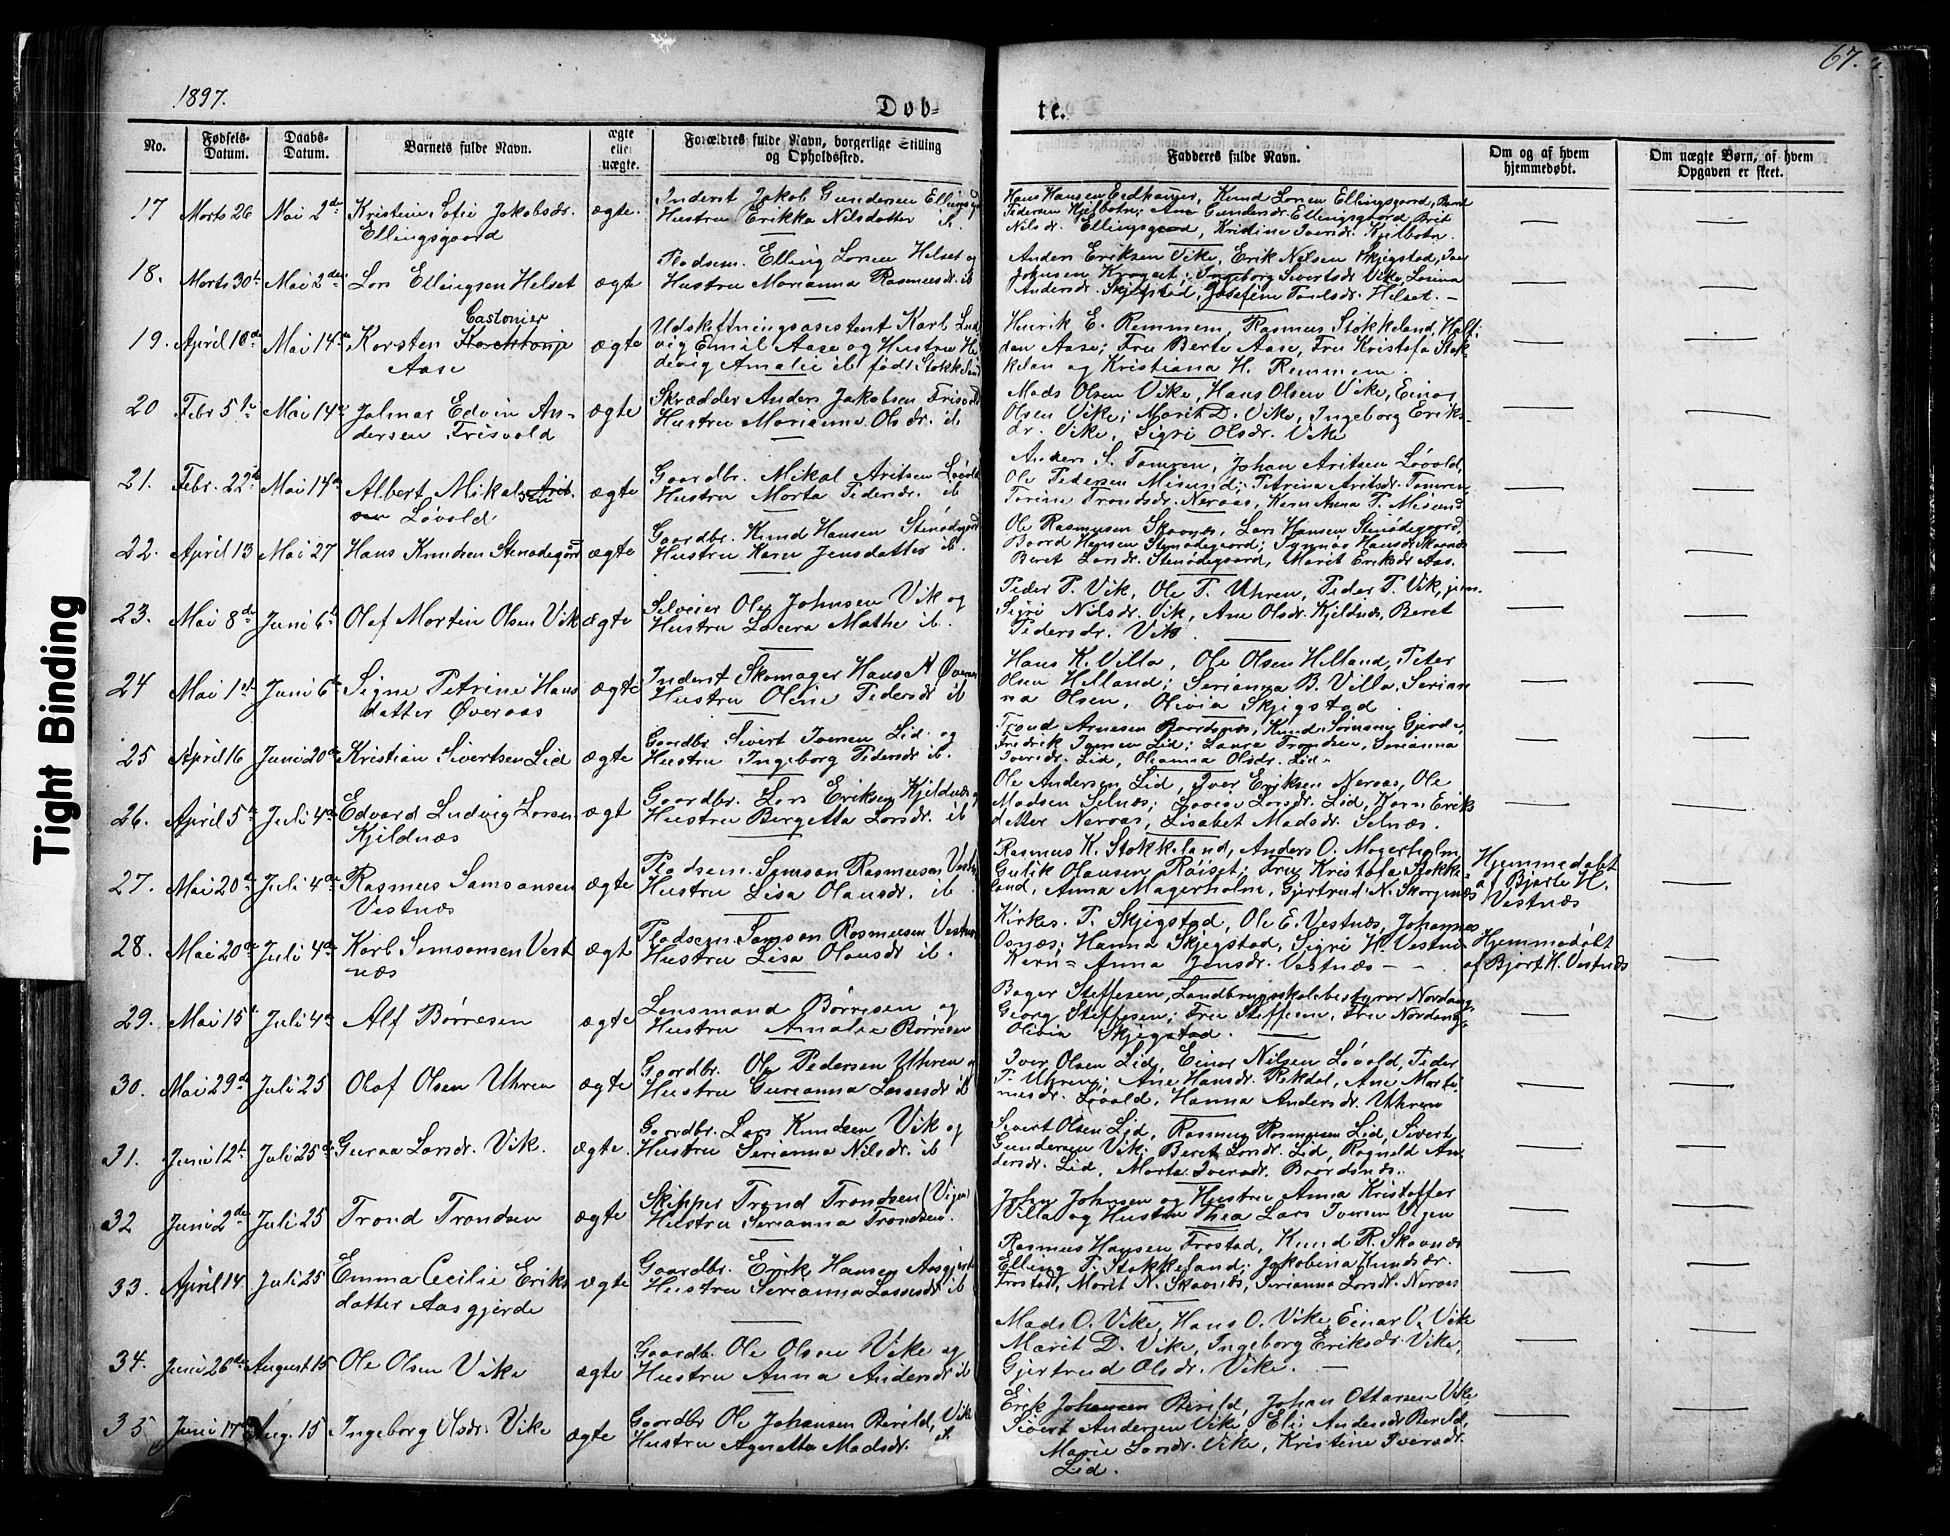 67.
1897.
Døb-
te.
No.
Fødsels-Datum.
Daabs-Datum.
Barnets fulde Navn.
ægte eller uægte.
Forældres fulde Navn, borgerlige Stilling og Opholdssted.
Fadderes fulde Navn.
Om og af hvem hjemmedøbt.
Om uægte Børn, af hvem Opgaven er skeet.
17 Marts 26 Mai 2de Kristine Sofie Jakobsdr. Ellingsgaard ægte.
Inderst Jakob Gundersen
Hustru Erikka Nilsdatter ib.
Hans Hansen, Knud Larsen Ellingsgaard,
Pedersen Kjelbotn; Ane Gundersdr. Ellingsgaard, Brit
Nilsdr. Ellingsgaard, Kristine Iversdr. Kjelbotn.
18. Marts 30te Mai 2den Lars Ellingsen Helset ægte
Pladsem. Elling Larsen Helset og
Hustru Marianna Rasmusdr. ib
Anders Eriksen Vike, Erik Nilsen Skjegstad,
Johnsen; Ingeborg Sivertsdr. Vike,
Andersdr. Skjegstad, Josefine Helset. –
19. April 10de Mai 14de Karsten Castonier Aase ægte
Udskiftningsasistent Karl Lud
vig Emil Aase og Hustru He
devig Amalie ib født Stokkeland
Henrik E. Remmem, Rasmus Stokkeland, Half-
dan Aase; Fru Berte Aase, Fru Kristofa Stok-
kelan og Kristiana H. Remmem.
20 Febr 5te Mai 14de Jalmar Edvin An-
dersen Frisvold ægte
Skrædder Anders Jakobsen Frisvold
Hustru Marianne Olsdr. ib
Mads Olsen Vike, Hans Olsen Vike, Einar
Olsen Vike; Marit D. Vike, Ingeborg Eriks-
dr. Vike, Sigri Olsdr. Vike
21. Febr. 22de Mai 14de Albert Mikalsen
Løvold ægte
Gaardbr. Mikal Aritsen Løvold
Hustru Marta Pedersdr. ib
Anders S. Tomren, Johan Aritsen Løvold,
Ole Pedersen Misund; Petrina Aritsdr. Tomren,
Trondsdr. Neraas, Karen Anna P. Misund
22. April 13 Mai 27 Hans Knudsen Stenødegard ægte
Gaardbr. Knud Hansen Stenødegaard
Hustru Karen Jensdatter ib.
Ole Rasmusen Skavnes, Lars Hansen Stenødegaard,
Baard Hansen Stenødegaard; Synnøs Hansdr. Skavnes
Beret Larsdr. Stenødegaard, Marit Eriksdr. Aas.
23. Mai 8de Juni 6te Olaf Martin Olsen Vik ægte
Selveier Ole Johnsen Vik og
Hustru Laura Mathe ib.
Peder P. Vik, Ole P. Uhren, Peder P. Vik, jun.
Sigri Nilsdr. Vik, Ane Olsdr. Kjeldnæs, Beret
Pedersdr. Vik.
24 Mai 1ste Juni 6te Signe Petrine Hans
datter Øveraas ægte
Inderst Skomager Hans A Øveraas
Hustru Oline Pedersdr ib
Hans K. Villa, Ole Olsen Helland, Peter
Olsen Helland; Serianna B. Villa, Serian-
na Olsen, Olivia Skjegstad.
25 April 16 Juni 20de Kristian Sivertsen Lid ægte
Gaardbr. Sivert Iversen Lid og
Hustru Ingeborg Pedersdr ib
Trond Arnesen Baardsnæs, Knud Sørnsen Gjerde,
Fredrik Iversen Lid; Laura Trondsen, Serianna
Iversdr. Lid, Olianna Olsdr. Lid.
26. April 5te Juli 4de Edvard Ludvig Larsen
Kjeldnæs ægt
Gaardbr. Lars Eriksen Kjeldnæs og
Hustru Bergetta Larsdr. ib
Ole Andersen Lid, Iver Eriksen Neraas, Ole
Madsen Selnæs; Larsdr. Lid, Karn Eriks
datter Neraas, Lisabet Madsdr. Selnæs.
27. Mai 20de Juli 4de Rasmus Samsonsen
Vestnæs ægte
Pladsem. Samson Rasmusen Vestnæs
Hustru Lisa Olausdr. ib
Rasmus K. Stokkeland, Anders O. Magerholm,
Gulik Olausen Røiset; Fru Kristofa Stokke-
land, Anna Magerholm, Gjertrud N. Skorgenæs
Hjemmedøbt
af Bjarte H.
Vestnæs
28. Mai 20de Juli 4de Karl Samsonsen Vest
næs ægt
Pladsem. Samson Rasmusen Vestnæs
Hustru Lisa Olausdr ib.
Kirkes. P. Skjegstad, Ole E. Vestnæs, Johannes
Osnæs; Hanna Skjegstad, Sigri H. Vestnæs
Karn = Anna Jensdr. Vestnæs –
Hjemmedøbt
af Bjart H. Vestnæs
29. Mai 15de Juli 4de Alf Børresen ægte
Lensmand Børresen og
Hustru Amalie Børresen
Bager Steffesen, Landbrugsskolebestyrer Nordang
Georg Steffesen; Fru Steffesen, Fru Nordang,
Olivia Skjegstad.
30. Mai 29de Juli 25 Olaf Olsen Uhren ægte
Gaardbr. Ole Pedersen Uhren og
Hustru Gurianna Lassesdr ib
Iver Olsen Lid, Einar Nilsen Løvold, Peder
P. Uhren; Ane Hansdr. Rekdal, Ane Marti-
nusdr. Løvold, Hanna Andersdr. Uhren
31. Juni 12te Juli 25de Guraa Larsdr. Vik. ægte.
Gaardbr. Lars Knudsen Vik og
Hustru Serianna Nilsdr. ib
Sivert Olsen Lid, Rasmus Rasmusen Lid, Sivert
Gundersen Vik; Beret Larsdr. Lid, Ragneld An-
dersdr. Lid, Marta Iversdr. Baardsnæs.
32 Juni 2de Juli 25 Trond Trondsen ægte
Skipper Trond Trondsen (Vigen)
Hustru Serianna Trondsen.
John Johnsen og Hustru Anna Kristoffer
Villa og Hustru Thea Lars Iversen Vigen
33. April 14 Juli 25 Emma Cecilie Eriks
datter Aasgjerde ægte
Gaardbr. Erik Hansen Aasgjerde
Hustru Serianna Lassesdr ib
Rasmus Hansen Frostad, Knud R. Skavnæs
Elling P. Stokkeland; Jakobina Knudsdr.
Frostad, Marit N. Skavnæs, Serianna Larsdr. Neraas
34. Juni 26de August 15 Ole Olsen Vike ægte
Gaardbr. Ole Olsen Vike og
Hustru Anna Andersdr ib
Mads O. Vike, Hans O. Vike, Einar O. Vike
Marit D. Vike, Ingeborg Eriksdr. Vike,
Gjertrud Olsdr. Vike. –
35 Juni 17de Aug. 15 Ingeborg Olsdr. Vike ægte
Gaardbr Ole Johansen Berild, Vik
Hustru Agnetta Madsdr. ib
Erik Johansen Berild, Johan Ottarsen Vike,
Sivert Andersen Vike, Eli Andersdr Berild,
Marie Larsdr. Vike, Kristine Iversdr.
Lid.
Tight Binding